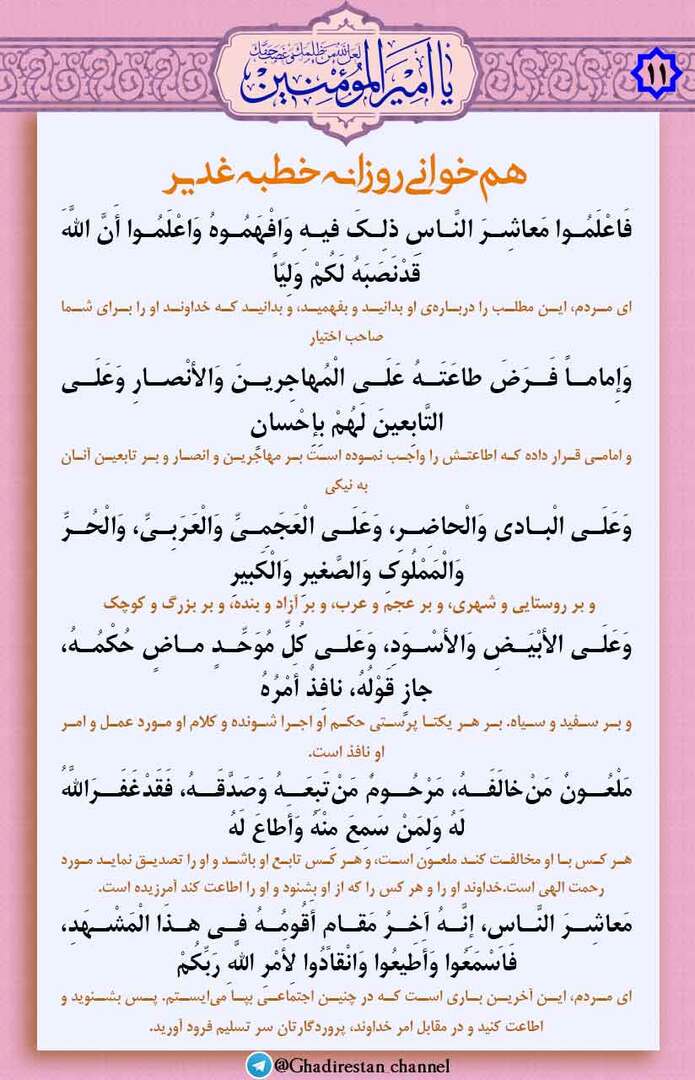 ۱۱
لعن الله من ظلمک و غصب حقک
یا امیرالمؤمنین
هم خوانی روزانه خطبه غدیر
فَاعْلَمُوا مَعاشِرَ النَّاسِ ذلِکَ فیهِ وَافْهَمُوهُ وَاعْلَمُوا أَنَّ اللَّهَ
قَدْ نَصَبَهُ لَکُمْ وَلِیّاً
ای مردم، این مطلب را درباره‌ی او بدانید و بفهمید، و بدانید که خداوند او را برای شما
صاحب اختیار
وَإِماماً فَرَضَ طاعَتَهُ عَلَی الْمُهاجِرینَ وَالأَنْصارِ وَعَلَی
التَّابِعینَ لَهُمْ بِإِحْسانٍ
و امامی قرار داده که اطاعتش را واجب نموده است بر مهاجرین و انصار و بر تابعین آنان
به نیکی
وَعَلَی الْبادی وَالْحاضِرِ، وَعَلَی الْعَجَمیِّ وَالْعَرَبیِّ، وَالْحُرِّ
وَالْمَمْلُوکِ وَالصَّغیرِ وَالْکَبیرِ
و بر روستایی و شهری، و بر عجم و عرب، و بر آزاد و بنده، و بر بزرگ و کوچک
وَعَلَی الأَبْیَضِ وَالأَسْوَدِ، وَعَلی کُلِّ مُوَحِّدٍ ماضٍ حُکْمُهُ،
جازٍ قَوْلُهُ، نافِذٌ أَمْرُهُ
و بر سفید و سیاه. بر هر یکتا پرستی حکم او اجرا شونده و کلام او مورد عمل و امر
او نافذ است.
مَلْعُونٌ مَنْ خالَفَهُ، مَرْحُومٌ مَنْ تَبِعَهُ وَصَدَّقَهُ، فَقَدْ غَفَرَ اللَّهُ
لَهُ وَلِمَنْ سَمِعَ مِنْهُ وَأَطاعَ لَهُ
هر کس با او مخالفت کند ملعون است، و هر کس تابع او باشد و او را تصدیق نماید مورد
رحمت الهی است.خداوند او را و هر کس را که از او بشنود و او را اطاعت کند آمرزیده است.
مَعاشِرَ النَّاسِ، إِنَّهُ آخِرُ مَقامٍ أَقُومُهُ فی هذَا الْمَشْهَدِ،
فَاسْمَعُوا وَأَطیعُوا وَانْقادُوا لأَمْرِ اللَّهِ رَبِّکُمْ
ای مردم، این آخرین باری است که در چنین اجتماعی بپا می‌ایستم. پس بشنوید و
اطاعت کنید و در مقابل امر خداوند، پروردگارتان سر تسلیم فرود آورید.
@Ghadirestan_channel